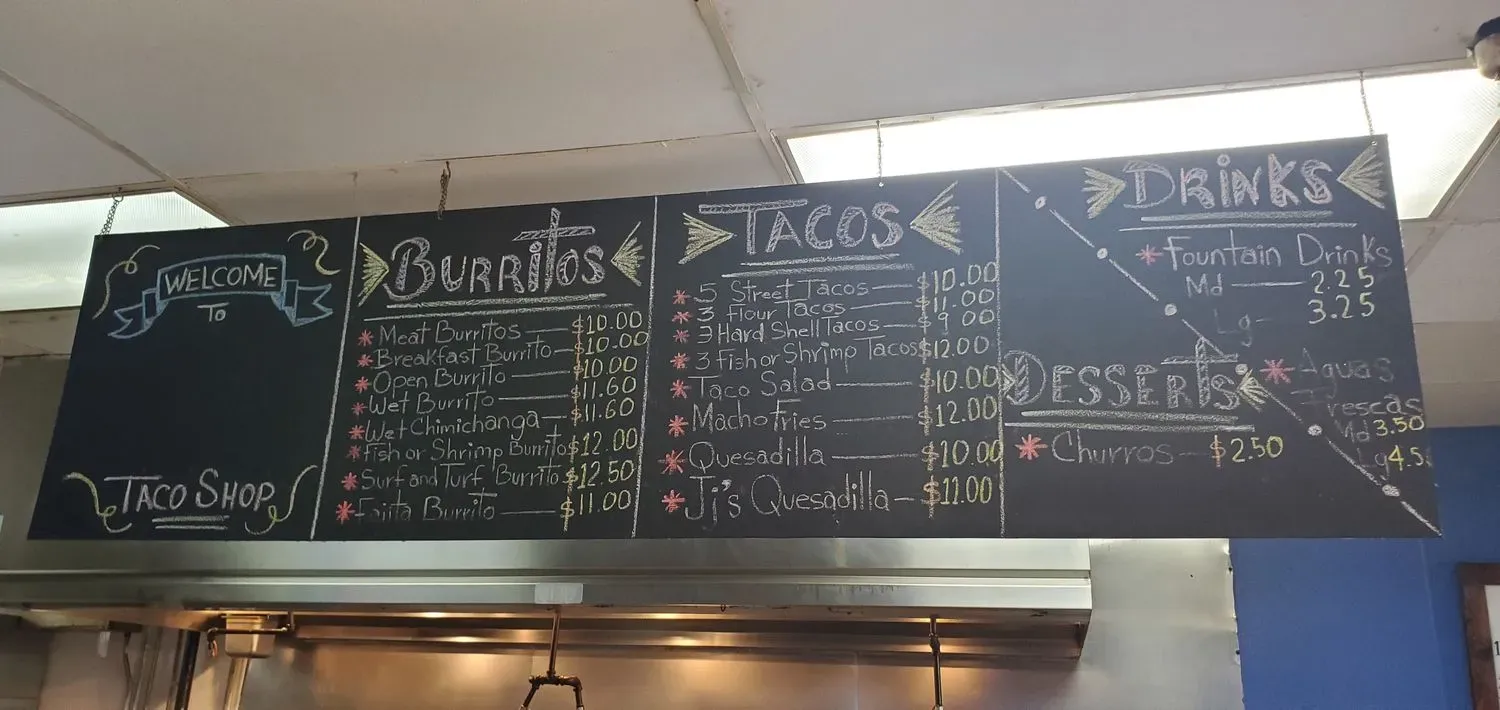 WELCOME
TO
TACO SHOP
BURRITOS
* Meat Burritos — $10.00
* Breakfast Burrito — $10.00
* Open Burrito — $10.00
* Wet Burrito — $11.60
* Wet Chimichanga — $11.60
* Fish or Shrimp Burrito $12.00
* Surf and Turf Burrito $12.50
* Fajita Burrito — $11.00
TACOS
* 5 Street Tacos — $10.00
* 3 flour Tacos — $11.00
* 3 Hard Shell Tacos — $9.00
* 3 Fish or Shrimp Tacos $12.00
* Taco Salad — $10.00
* Macho Fries — $12.00
* Quesadilla — $10.00
* Jj's Quesadilla — $11.00
DRINKS
* Fountain Drinks
Md — 2.25
Lg — 3.25
* Aguas
Frescas
Md 3.50
Lg 4.5
DESSERTS
* Churros — $2.50